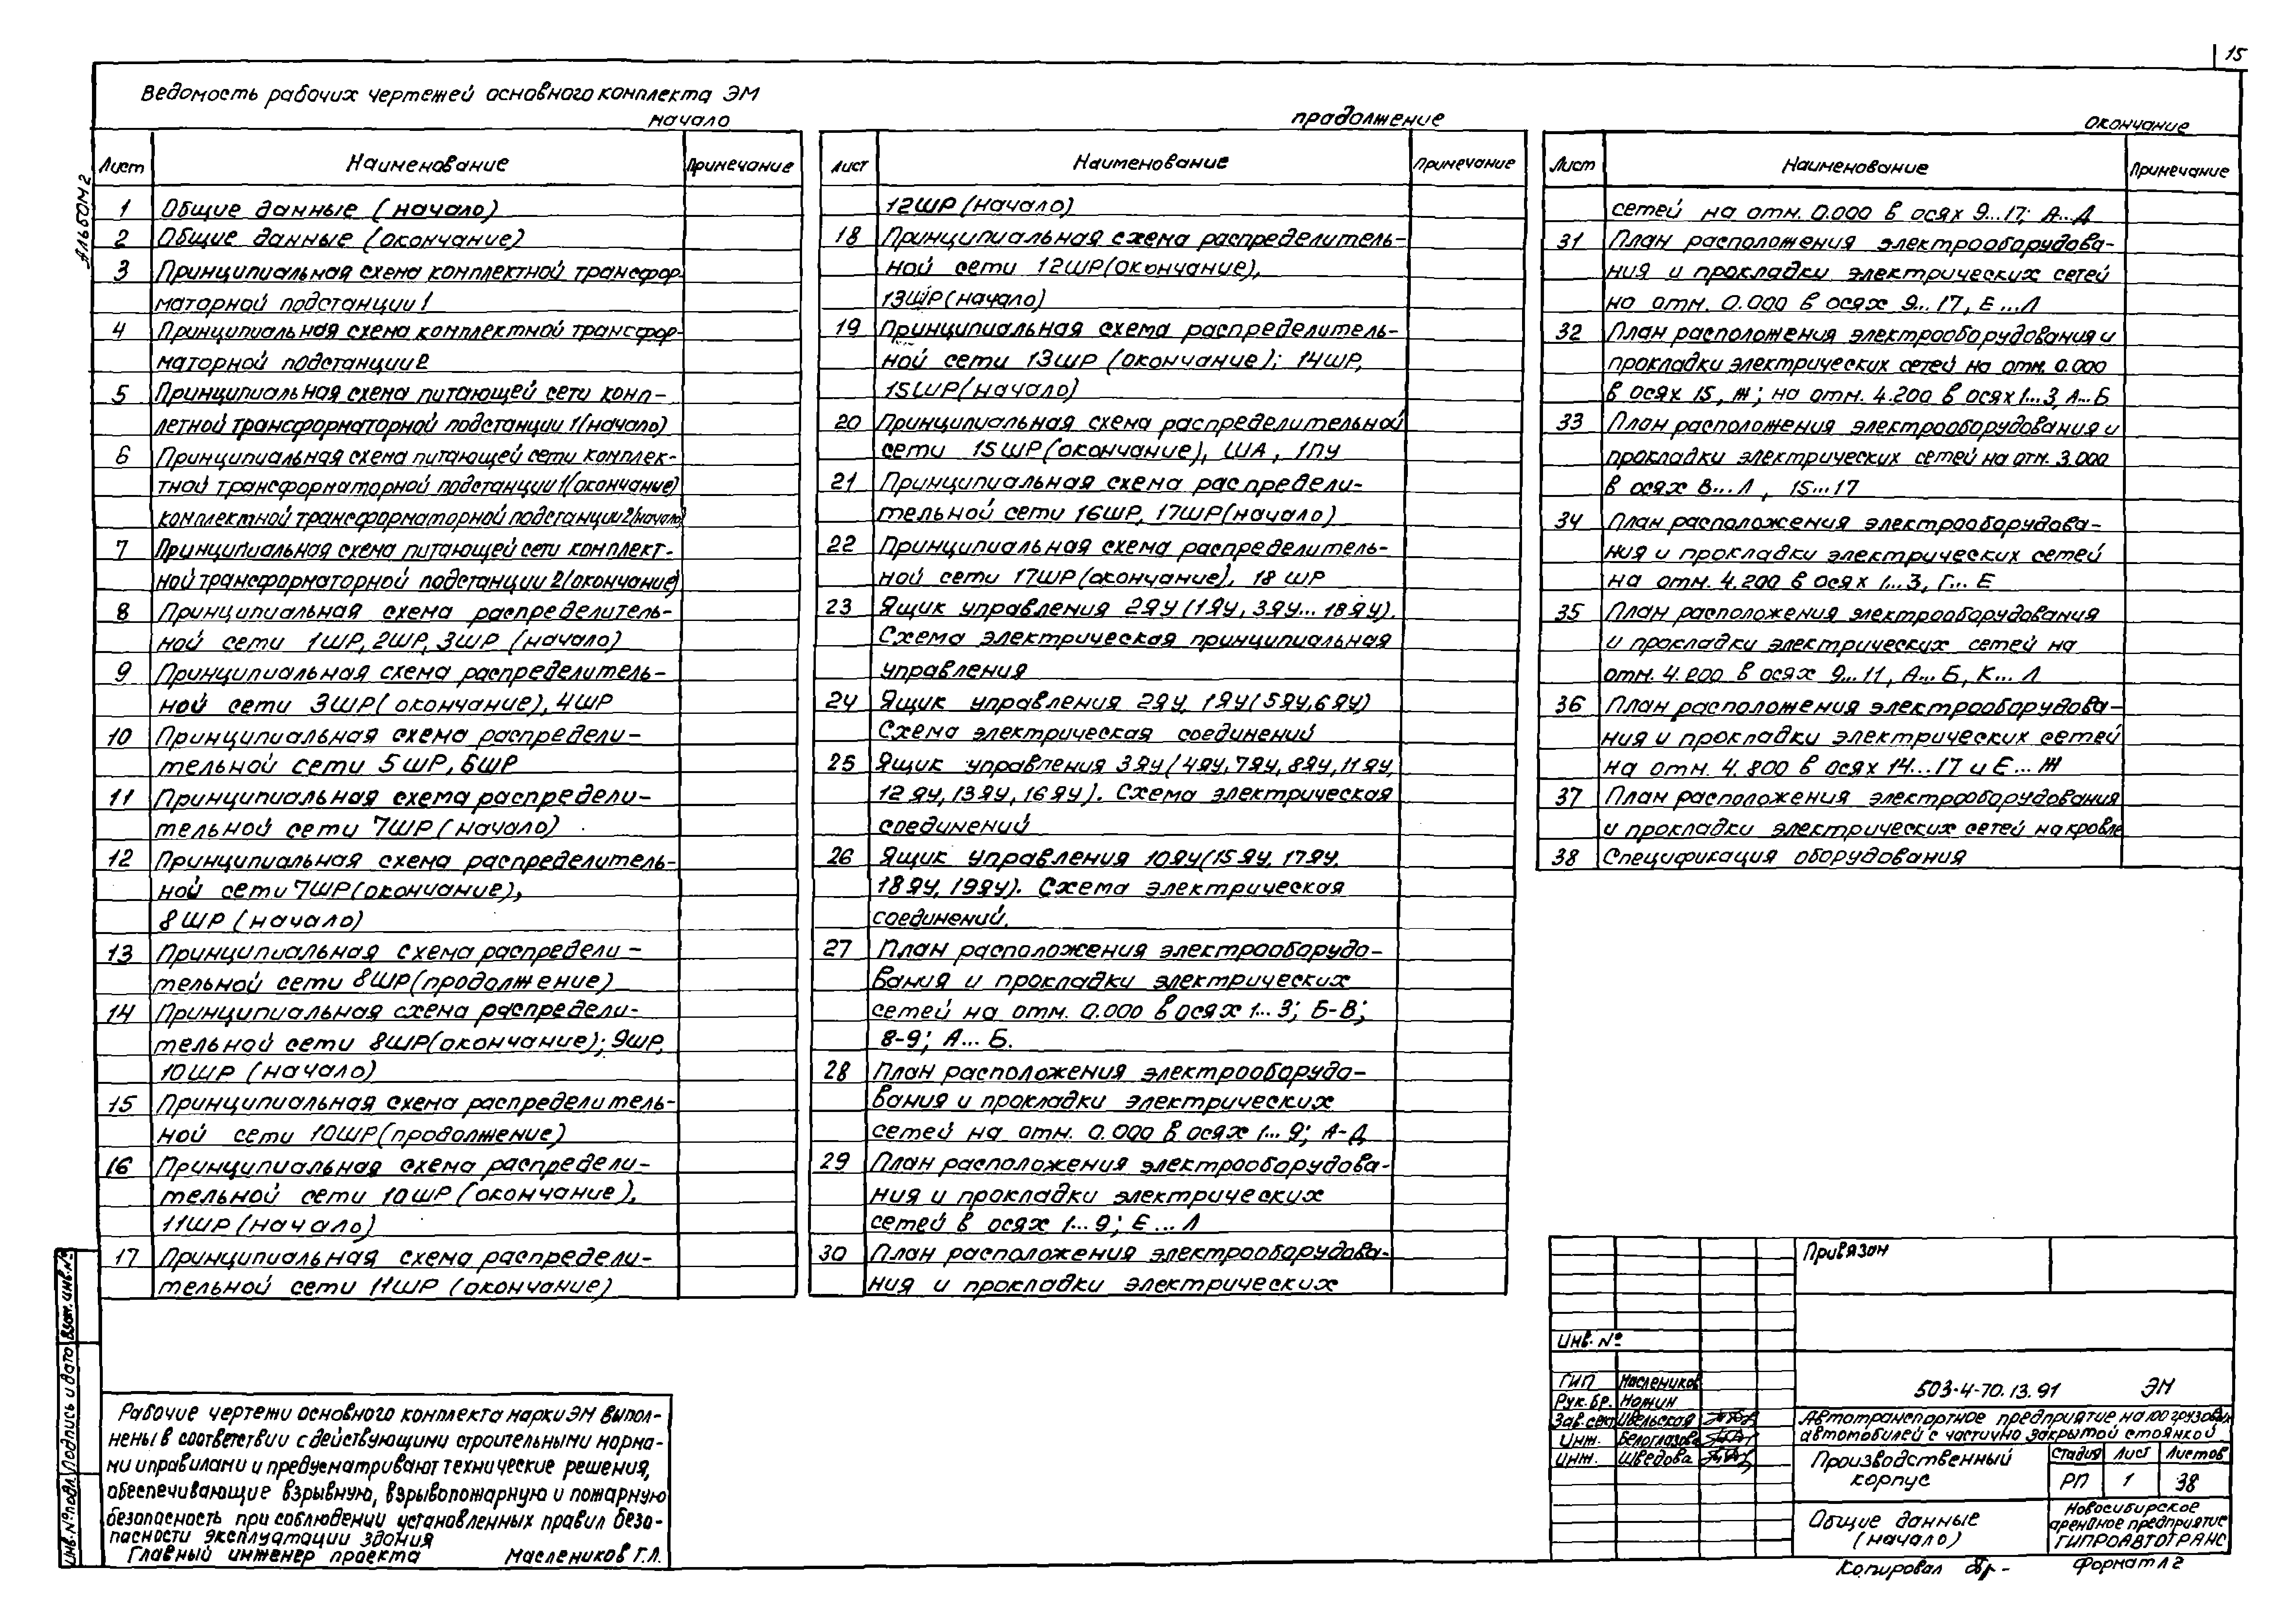 15
Альбом 2
Ведомость рабочих чертежей основного комплекта ЭМ
начало
Лист Наименование Примечание
1 Общие данные (начало)
2 Общие данные (окончание)
3 Принципиальная схема комплектной трансфор-
маторной подстанции 1
4 Принципиальная схема комплектной трансфор-
маторной подстанции 2
5 Принципиальная схема питающей сети комп-
летной трансформаторной подстанции 1 (начало)
6 Принципиальная схема питающей сети комплек-
тной трансформаторной подстанции 1 (окончание)
комплектной трансформаторной подстанции 2 (начало)
7 Принципиальная схема питающей сети комплект-
ной трансформаторной подстанции 2 (окончание)
8 Принципиальная схема распределитель-
ной сети 1ШР, 2ШР, 3ШР (начало)
9 Принципиальная схема распределитель-
ной сети 3ШР (окончание), 4ШР
10 Принципиальная схема распредели-
тельной сети 5ШР, 6ШР
11 Принципиальная схема распредели-
тельной сети 7ШР (начало)
12 Принципиальная схема распределитель-
ной сети 7ШР (окончание),
8ШР (начало)
13 Принципиальная схема распредели-
тельной сети 8ШР (продолжение)
14 Принципиальная схема распредели-
тельной сети 8ШР (окончание); 9ШР,
10ШР (начало)
15 Принципиальная схема распределитель-
ной сети 10ШР (продолжение)
16 Принципиальная схема распредели-
тельной сети 10ШР (окончание),
11ШР (начало)
17 Принципиальная схема распредели-
тельной сети 11ШР (окончание)
продолжение
Лист Наименование Примечание
12ШР (начало)
18 Принципиальная схема распределитель-
ной сети 12ШР (окончание),
13ШР (начало)
19 Принципиальная схема распределитель-
ной сети 13ШР (окончание); 14ШР,
15ШР (начало)
20 Принципиальная схема распределительной
сети 15ШР (окончание), ША, 1ПУ
21 Принципиальная схема распредели-
тельной сети 16ШР, 17ШР (начало)
22 Принципиальная схема распределитель-
ной сети 17ШР (окончание), 18 ШР
23 Ящик управления 2ЯУ (1ЯУ, 3ЯУ... 18ЯУ).
Схема электрическая принципиальная
управления
24 Ящик управления 2ЯУ, 1ЯУ (5ЯУ, 6ЯУ)
Схема электрическая соединений
25 Ящик управления 3ЯУ (4ЯУ, 7ЯУ, 8ЯУ, 11ЯУ,
12ЯУ, 13ЯУ, 16ЯУ). Схема электрическая
соединений
26 Ящик управления 10ЯУ (15ЯУ, 17ЯУ,
18ЯУ, 19ЯУ). Схема электрическая
соединений.
27 План расположения электрооборудо-
вания и прокладки электрических
сетей на отм. 0.000 в осях 1...3; Б-В;
8-9; А...Б.
28 План расположения электрооборудо-
вания и прокладки электрических
сетей на отм. 0.000 в осях 1...9; А-Д
29 План расположения электрооборудова-
ния и прокладки электрических
сетей в осях 1...9; Е...Л
30 План расположения электрооборудова-
ния и прокладки электрических
окончание
Лист Наименование Примечание
сетей на отм. 0.000 в осях 9...17; А...Д
31 План расположения электрооборудова-
ния и прокладки электрических сетей
на отм. 0.000 в осях 9...17, Е...Л
32 План расположения электрооборудования и
прокладки электрических сетей на отм. 0.000
в осях 15, Ж; на отм. 4.200 в осях 1...3, А...Б
33 План расположения электрооборудования и
прокладки электрических сетей на отм. 3.000
в осях В...Л, 15...17
34 План расположения электрооборудова-
ния и прокладки электрических сетей
на отм. 4.200 в осях 1...3, Г...Е
35 План расположения электрооборудования
и прокладки электрических сетей на
отм. 4.200 в осях 9...11, А...Б, К...Л
36 План расположения электрооборудова-
ния и прокладки электрических сетей
на отм. 4.800 в осях 14...17 и Е...Ж
37 План расположения электрооборудования
и прокладки электрических сетей на кровле
38 Спецификация оборудования
Рабочие чертежи основного комплекта марки ЭМ выпол-
нены в соответствии с действующими строительными норма-
ми и правилами и предусматривают технические решения,
обеспечивающие взрывную, взрывопожарную и пожарную
безопасность при соблюдении установленных правил безо-
пасности эксплуатации здания
Главный инженер проекта Маслеников Г.Л.
Инв.№ подл. Подпись и дата Взам. инв.№
Привязан
Инв. №
ГИП Маслеников
Рук.бр. Ножин
Зав.сект Швельская
Инж. Белоглазова
Инж. Шведова
503-4-70.13.91 ЭМ
Автотранспортное предприятие на 100 грузовых
автомобилей с частично закрытой стоянкой
Производственный
корпус
Стадия Лист Листов
РП 1 38
Общие данные
(начало)
Новосибирское
арендное предприятие
ГИПРОАВТОТРАНС
Копировал Формат А2